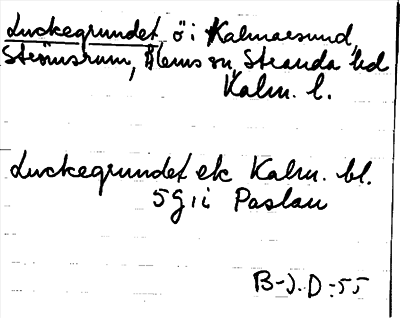 Luckegrundet ö i Kalmarsund,
Strömsrum, Ålems sn, Stranda hd
Kalm. l.
Luckegrundet ek Kalm. bl.
5G1i Paslau
B-J. D:55